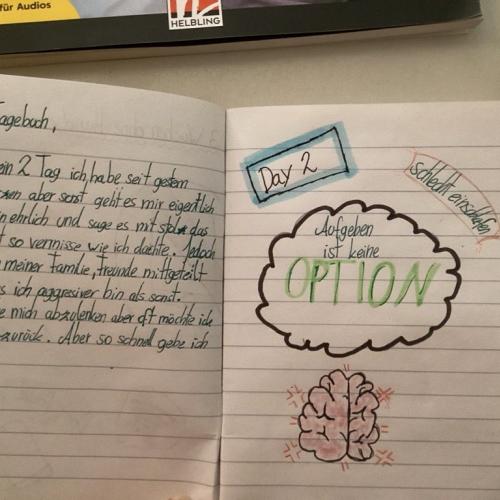 für Audios
HELBLING
Tagebuch,
ein 2 Tag ich habe seit gestern
aber sonst geht es mir eigentlich
ehrlich und sage es mit stolz das
t so vermisse wie ich dachte. Jedoch
meiner Familie, freunde mittgeteilt
s ich aggresiver bin als sonst.
e mich abzulenken aber oft möchte ich
zurück. Aber so schnel gebe ich
Day 2
schlecht einschlafen
Aufgeben
ist keine
OPTION